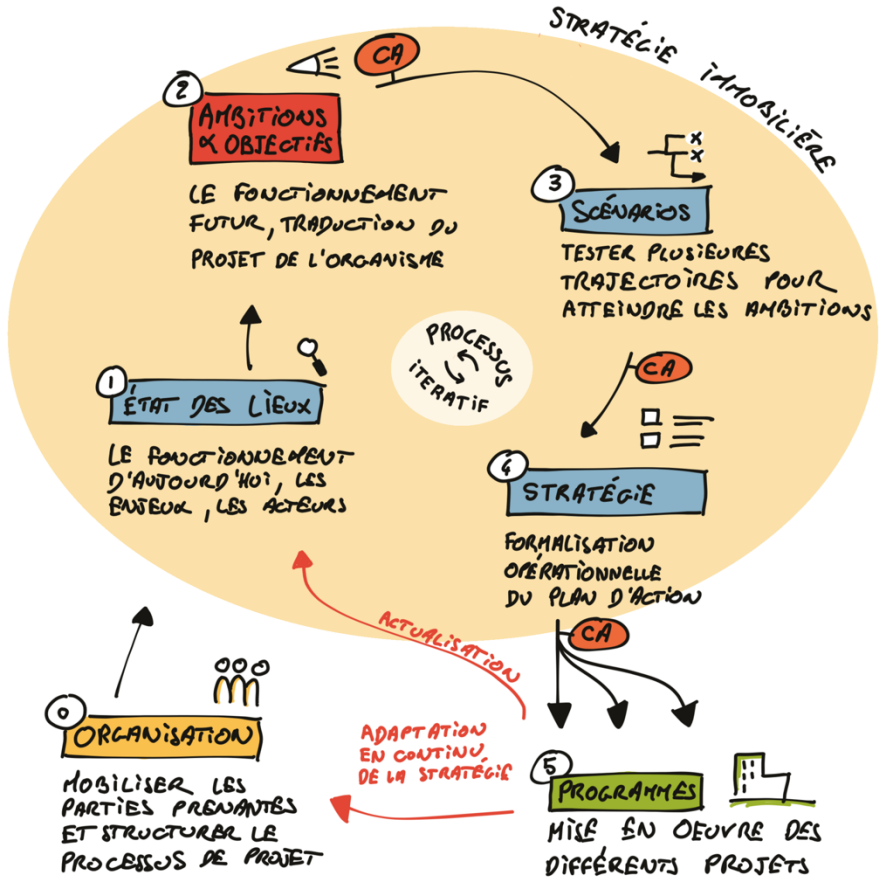 STRATÉGIE IMMOBILIÈRE
CA
2
AMBITIONS
& OBJECTIFS
LE FONCTIONNEMENT
FUTUR, TRADUCTION DU
PROJET DE L'ORGANISME
3
SCÉNARIOS
TESTER PLUSIEURES
TRAJECTOIRES POUR
ATTEINDRE LES AMBITIONS
PROCESSUS
ITERATIF
1
ÉTAT DES LIEUX
LE FONCTIONNEMENT
D'AUJOURD'HUI, LES
ENJEUX, LES ACTEURS
CA
4
STRATÉGIE
FORMALISATION
OPÉRATIONNELLE
DU PLAN D'ACTION
CA
ACTUALISATION
0
ORGANISATION
MOBILISER LES
PARTIES PRENANTES
ET STRUCTURER LE
PROCESSUS DE PROJET
ADAPTATION
EN CONTINU
DE LA STRATÉGIE
5
PROGRAMMES
MISE EN OEUVRE DES
DIFFÉRENTS PROJETS